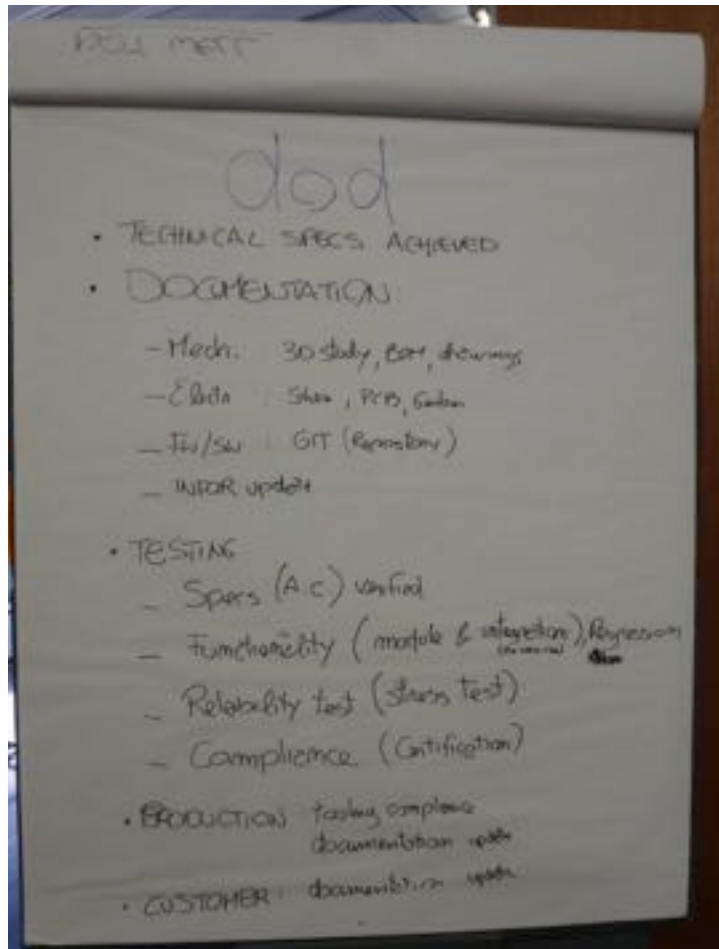 dod
• TECHNICAL SPECS ACHIEVED
• DOCUMENTATION:
- Mech. : 3D study, BOM, drawings
- Electr : PCB,
- FW/SW : GIT (Repository)
- INFOR update
• TESTING
- Specs (A.C) verified
- Functionality (module & integration), Regression
- Reliability test (stress test)
- Compliance (Certification)
• PRODUCTION: tooling compliance
documentation update
• CUSTOMER: documentation update